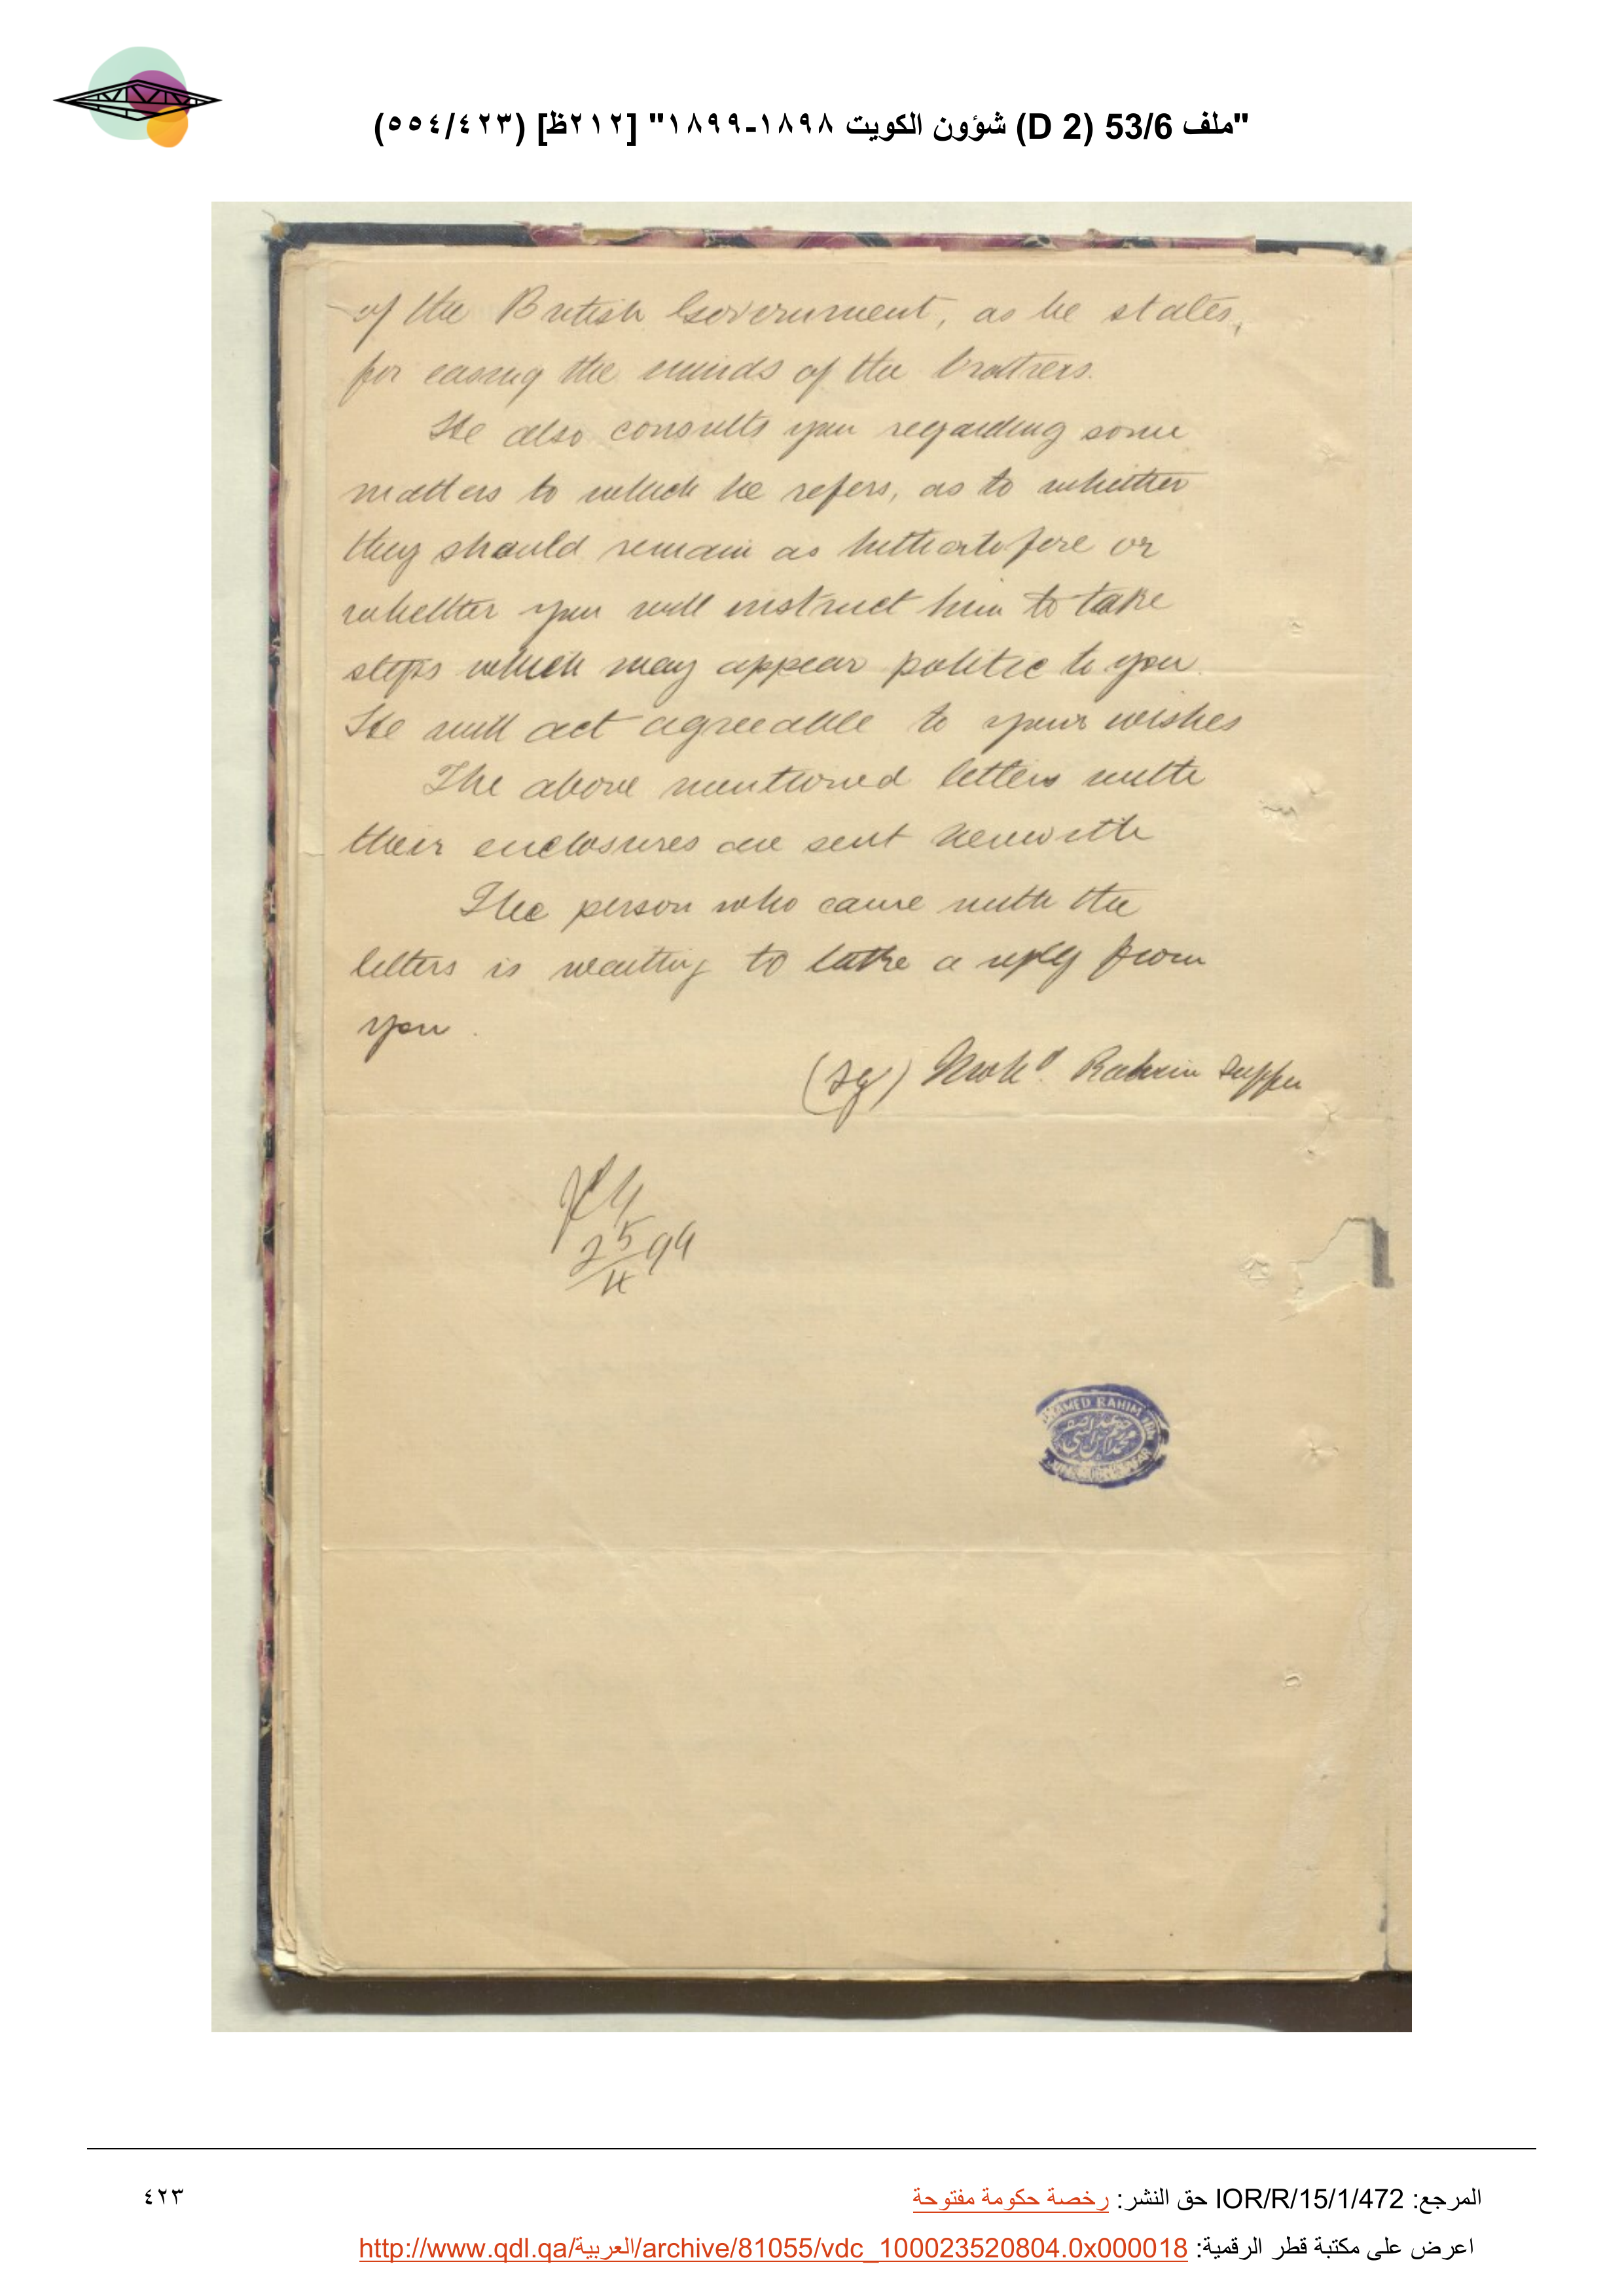 "ملف 53/6 (D 2) شؤون الكويت ١٨٩٨-١٨٩٩" [٢١٢ظ] (٥٥٤/٤٢٣)
of the British Government, as he states,
for easing the minds of the brothers.
He also consults you regarding some
matters to which he refers, as to whether
they should remain as hithertofore or
whether you will instruct him to take
steps which may appear politic to you.
He will act agreeable to your wishes
The above mentioned letters with
their enclosures are sent herewith
The person who came with the
letters is waiting to take a reply from
you.
(Sg) Mohd. Rahim
25/4 99
MED RAHIM
المرجع: IOR/R/15/1/472 حق النشر: رخصة حكومة مفتوحة
٤٢٣
اعرض على مكتبة قطر الرقمية: http://www.qdl.qa/العربية/archive/81055/vdc_100023520804.0x000018